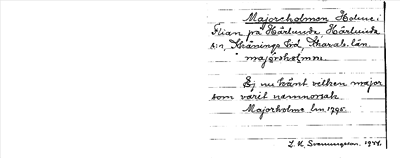 Majorcholmen Holme i
Flian på Härlunda, Härlunda
sn, Skånings hd, Skarab. län.
majorsholmen.
Ej nu känt vilken major
som varit namnorsak.
Majorholme lm 1795.
L. K. Svenungsson. 1951.